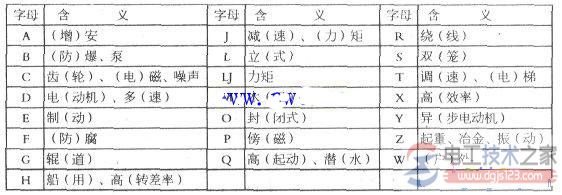 字母 含 义 字母 含 义 字母 含 义
A (增)安 J 减(速)、(力)矩 R 绕(线)
B (防)爆、泵 L 立(式) S 双(笼)
C 齿(轮)、(电)磁、噪声 LJ 力矩 T 调(速)、(电)梯
D 电(动机)、多(速) X 高(效率)
E 制(动) O 封(闭式) Y 异(步电动机)
F (防)腐 P 傍(磁) Z 起重、冶金、振(动)
G 辊(道) Q 高(起动)、潜(水) W
H 船(用)、高(转差率)
电工技术之家
www.dgjs123.com